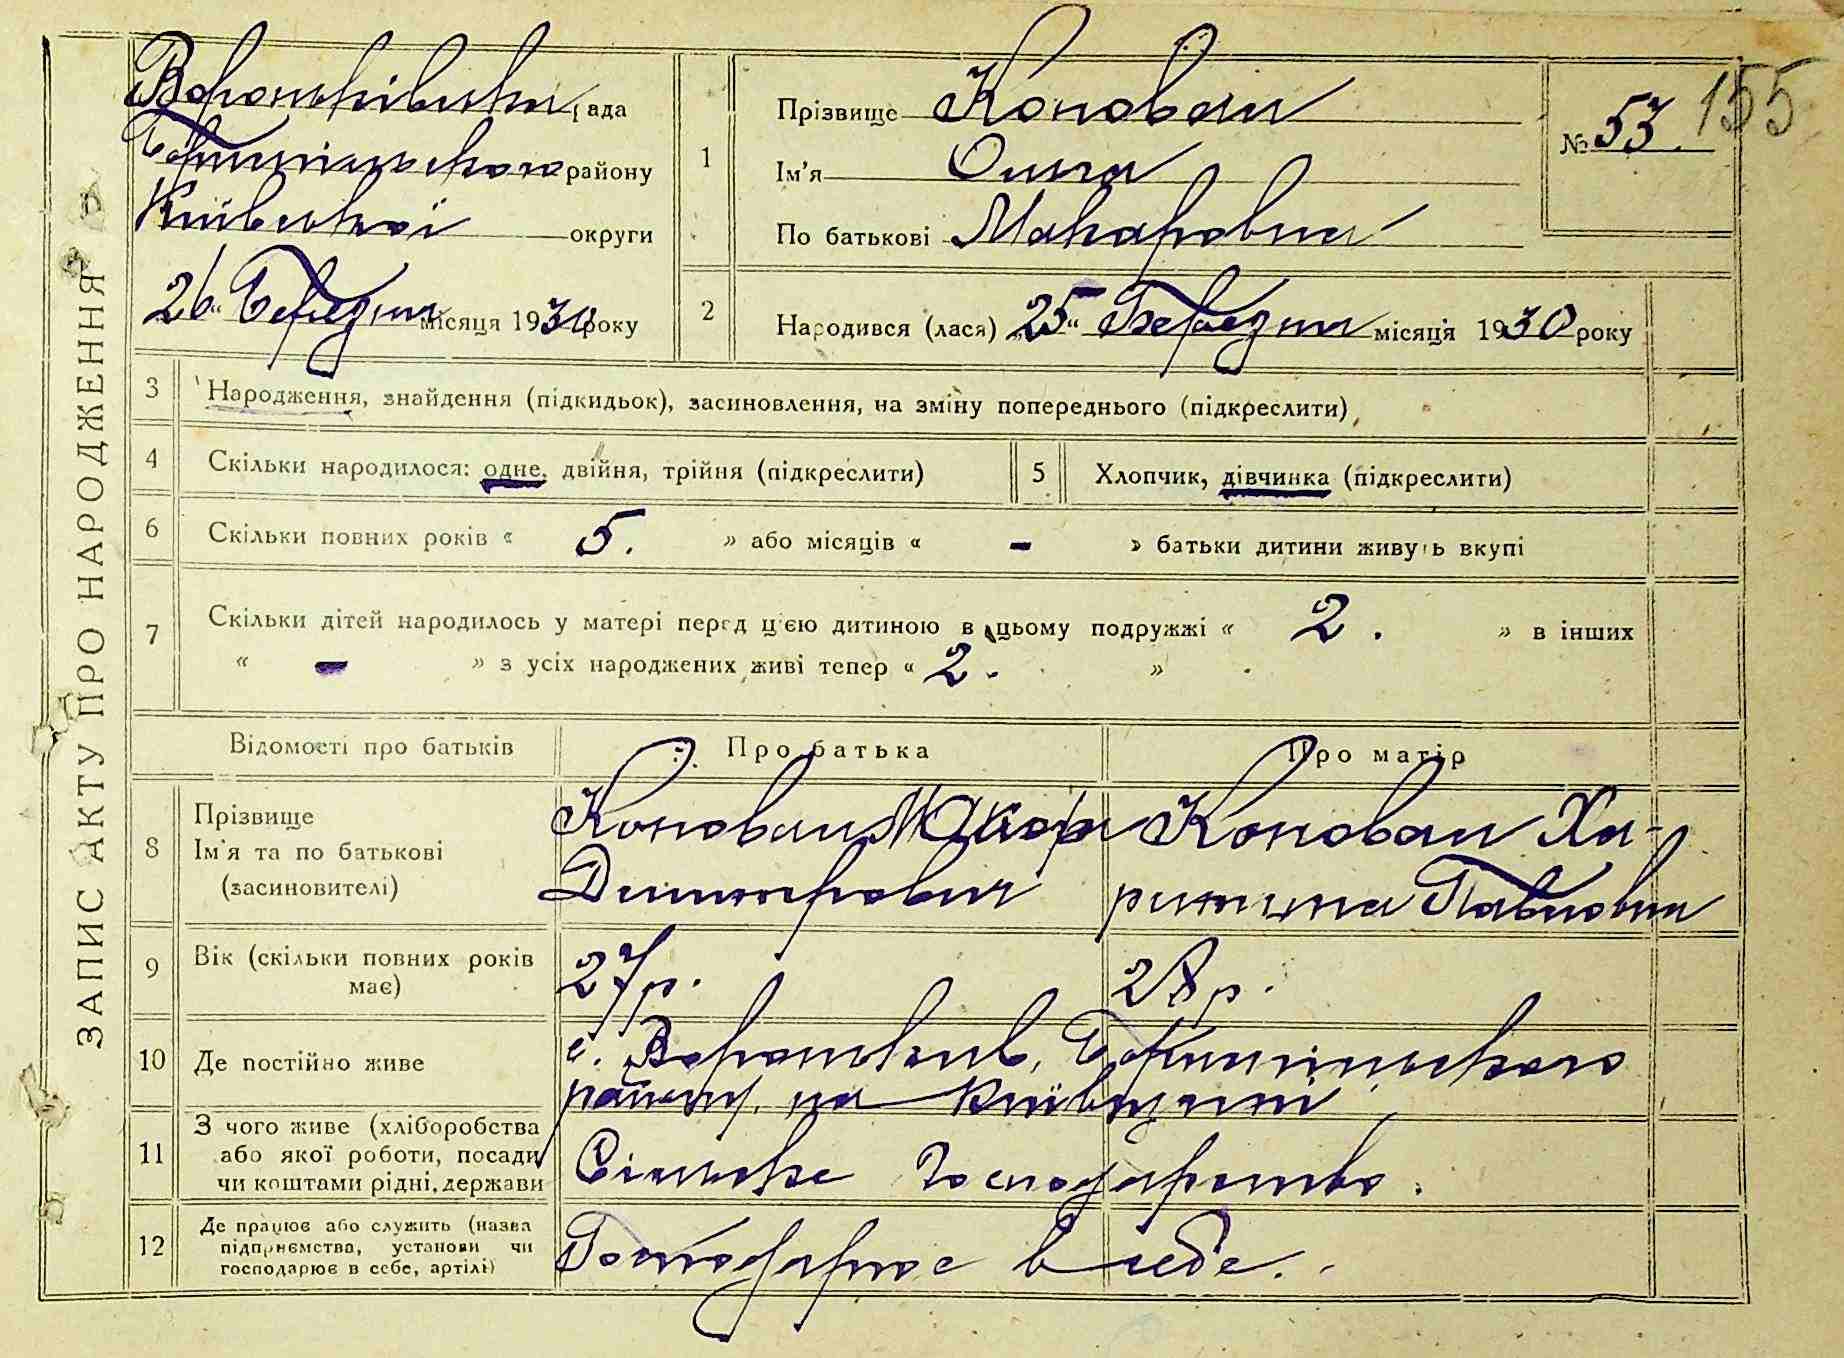 ЗАПИС АКТУ ПРО НАРОДЖЕННЯ
Вороньківська рада
Бориспільського району
Київської округи
26 „ Березня місяця 1930 року
1
Прізвище Коновал
Ім'я Ольга
По батькові Макаровна
№ 53.
155
2
Народився (лася) „25“ Березня місяця 1930 року
3 Народження, знайдення (підкидьок), засиновлення, на зміну попереднього (підкреслити)
4 Скільки народилося: одне, двійня, трійня (підкреслити)
5 Хлопчик, дівчинка (підкреслити)
6 Скільки повних років « 5. » або місяців « - » батьки дитини живуть вкупі
7 Скільки дітей народилось у матері перед цією дитиною в цьому подружжі « 2. » в інших
« - » з усіх народжених живі тепер « 2. »
Відомості про батьків Про батька Про матір
8 Прізвище
Ім'я та по батькові
(засиновителі)
Коновал Макар
Дмитрович
Коновал Ха-
ритина Павловна
9 Вік (скільки повних років
має)
27 р. 28 р.
10 Де постійно живе
с. Вороньків, Бориспільського
району на Київщині
11 З чого живе (хліборобства
або якої роботи, посади,
чи коштами рідні, держави
Сільське Господарство.
12 Де працює або служить (назва
підприємства, установи чи
господарює в себе, артілі)
Господарює в себе.